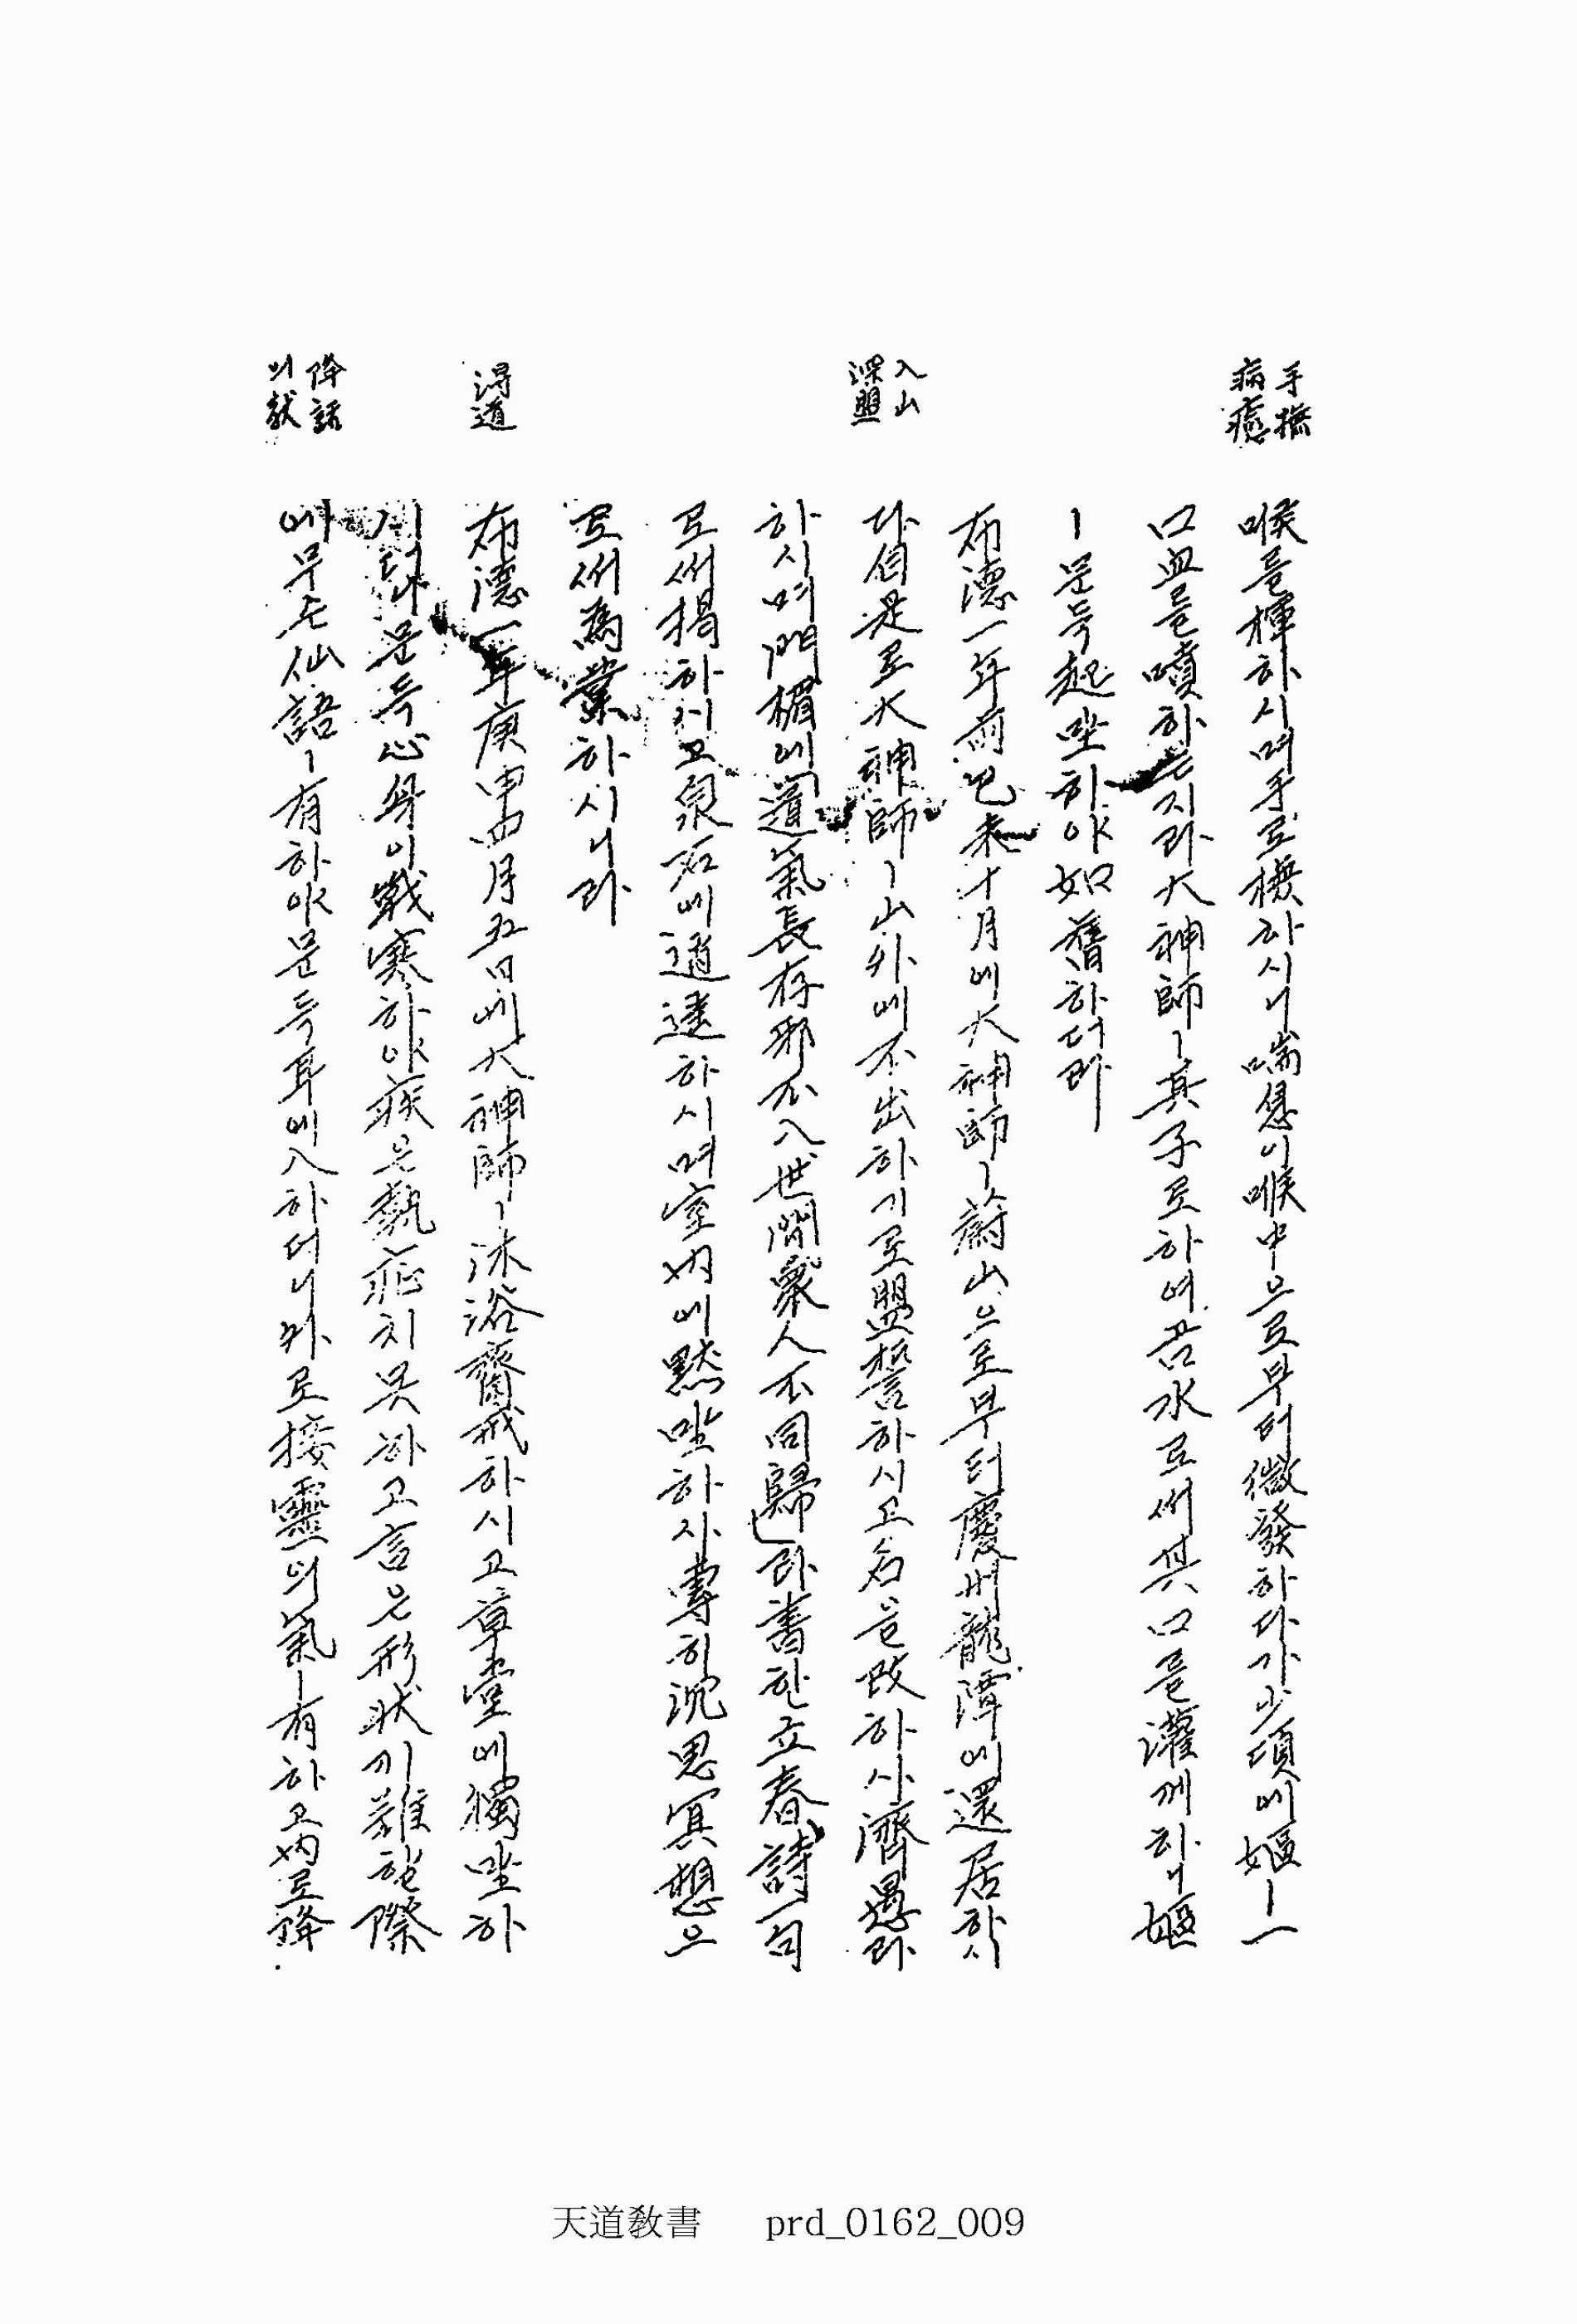 手撫
病癒
喉를揮하시며手로撫하시니喘息이喉中으로부터微發하다가少頃에嫗ㅣ一
口血을噴하는지라大神師ㅣ其子로하여곰水로써其口를灌케하니嫗
ㅣ문득起坐하야如舊하더라
布德一年前己未十月에大神師ㅣ蔚山으로부터慶州龍潭에還居하시
入山
深盟
다自是로大神師ㅣ山外에不出하기로盟誓하시고名을改하사濟愚라
하시며門楣에「道氣長存邪不入世間衆人不同歸」라書한立春詩一句
로써揭하시고泉石에逍遙하시며室內에黙坐하사專히沉思冥想으
로써爲業하시니라
得道
布德一年庚申四月五日에大神師ㅣ沐浴齋戒하시고草堂에獨坐하
시더니문득心身이戰寒하야疾은執症치못하고言은形狀키難헐際
降話
以獻
에무슨仙語ㅣ有하야문득耳에入하더니外로接靈의氣ㅣ有하고內로降
天道敎書 prd_0162_009